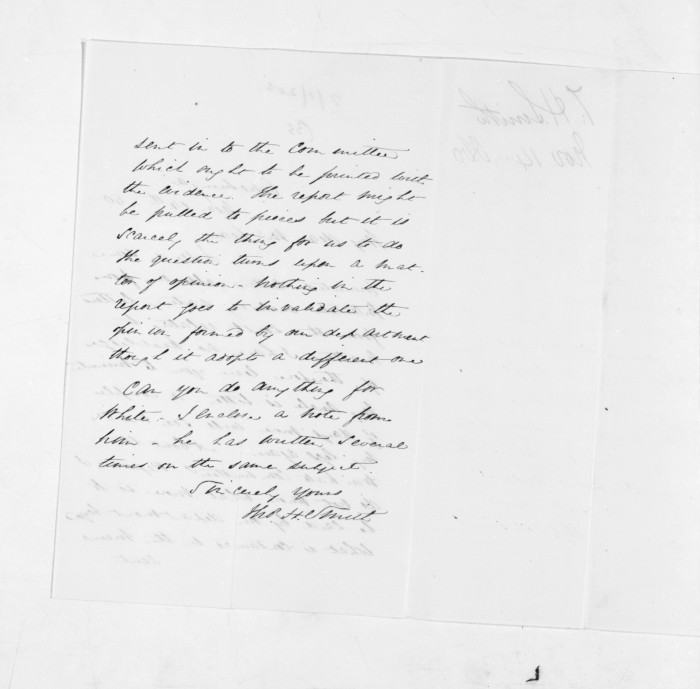 sent in to the Committee
which ought to be printed with
the evidence. The report might
be pulled to pieces but it is
scarcely the thing for us to do
the question turns upon a mat-
ter of opinion - nothing in the
report goes to invalidate the
opinion formed by our department
though it adopts a different one
Can you do anything for
White - I enclose a note from
him - he has written several
times on the same subject.
Sincerely yours
Tho. H. Smith
T. H. Smith
Nov 14